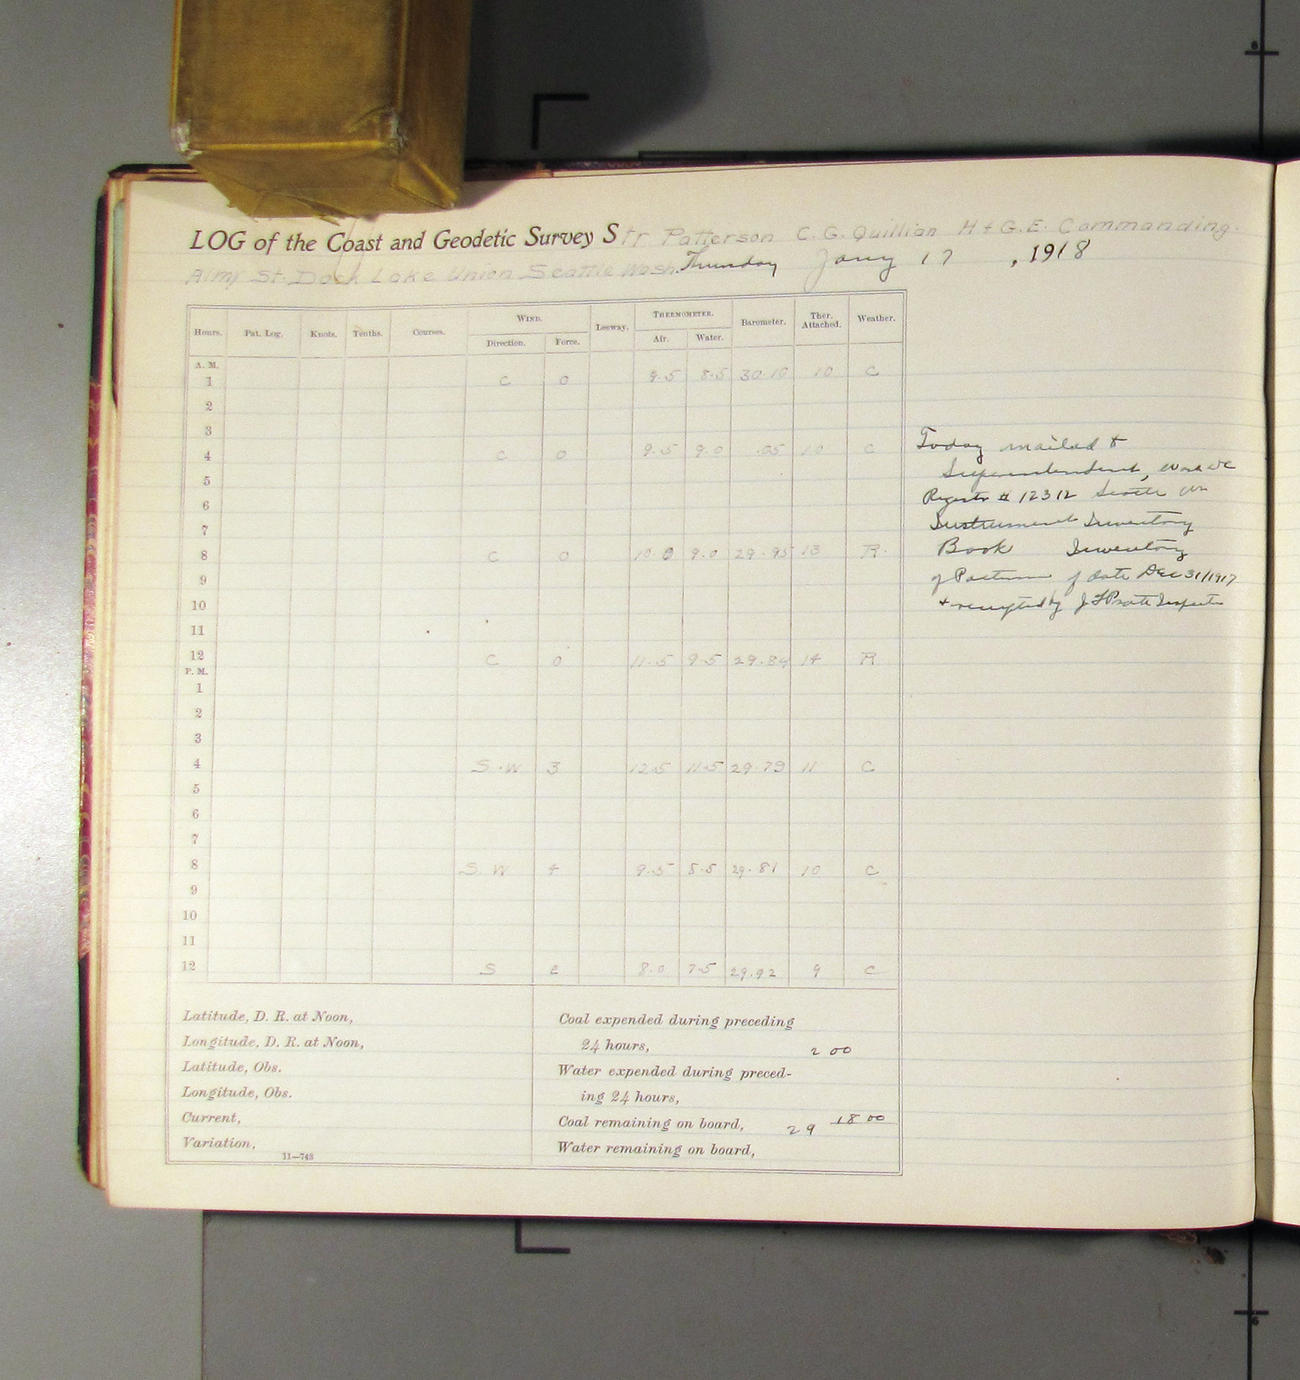 LOG of the Coast and Geodetic Survey Str Patterson C. G. Quillian H & G. E. Commanding.
St. Dock Lake Union Seattle Wash. Thursday Jany 17, 1918
Hours. Pat. Log. Knots. Tenths. Courses. WIND. Leeway. THERMOMETER. Barometer. Ther. Attached. Weather.
Direction. Force. Air. Water.
A. M.
1 C 0 9.5 8.5 30.10 10 C
2
3
4 C 0 9.5 9.0 .05 10 C
5
6
7
8 C 0 10.0 9.0 29.95 13 R.
9
10
11
12 C 0 11.5 9.5 29.84 14 R
P. M.
1
2
3
4 S.W 3 12.5 11.5 29.79 11 C
5
6
7
8 S.W 4 9.5 5.5 29.81 10 C
9
10
11
12 S 2 8.0 7.5 29.92 9 C
Today mailed to
Superintendent, Wash DC
Register # 12312 Seattle
Instrument Inventory
Book Inventory
of Patterson of date Dec 31/1917
+ receipted by J F Pratt Inspector
Latitude, D. R. at Noon,
Longitude, D. R. at Noon,
Latitude, Obs.
Longitude, Obs.
Current,
Variation,
11—743
Coal expended during preceding
24 hours, 2 00
Water expended during preced-
ing 24 hours,
Coal remaining on board, 29 18 00
Water remaining on board,